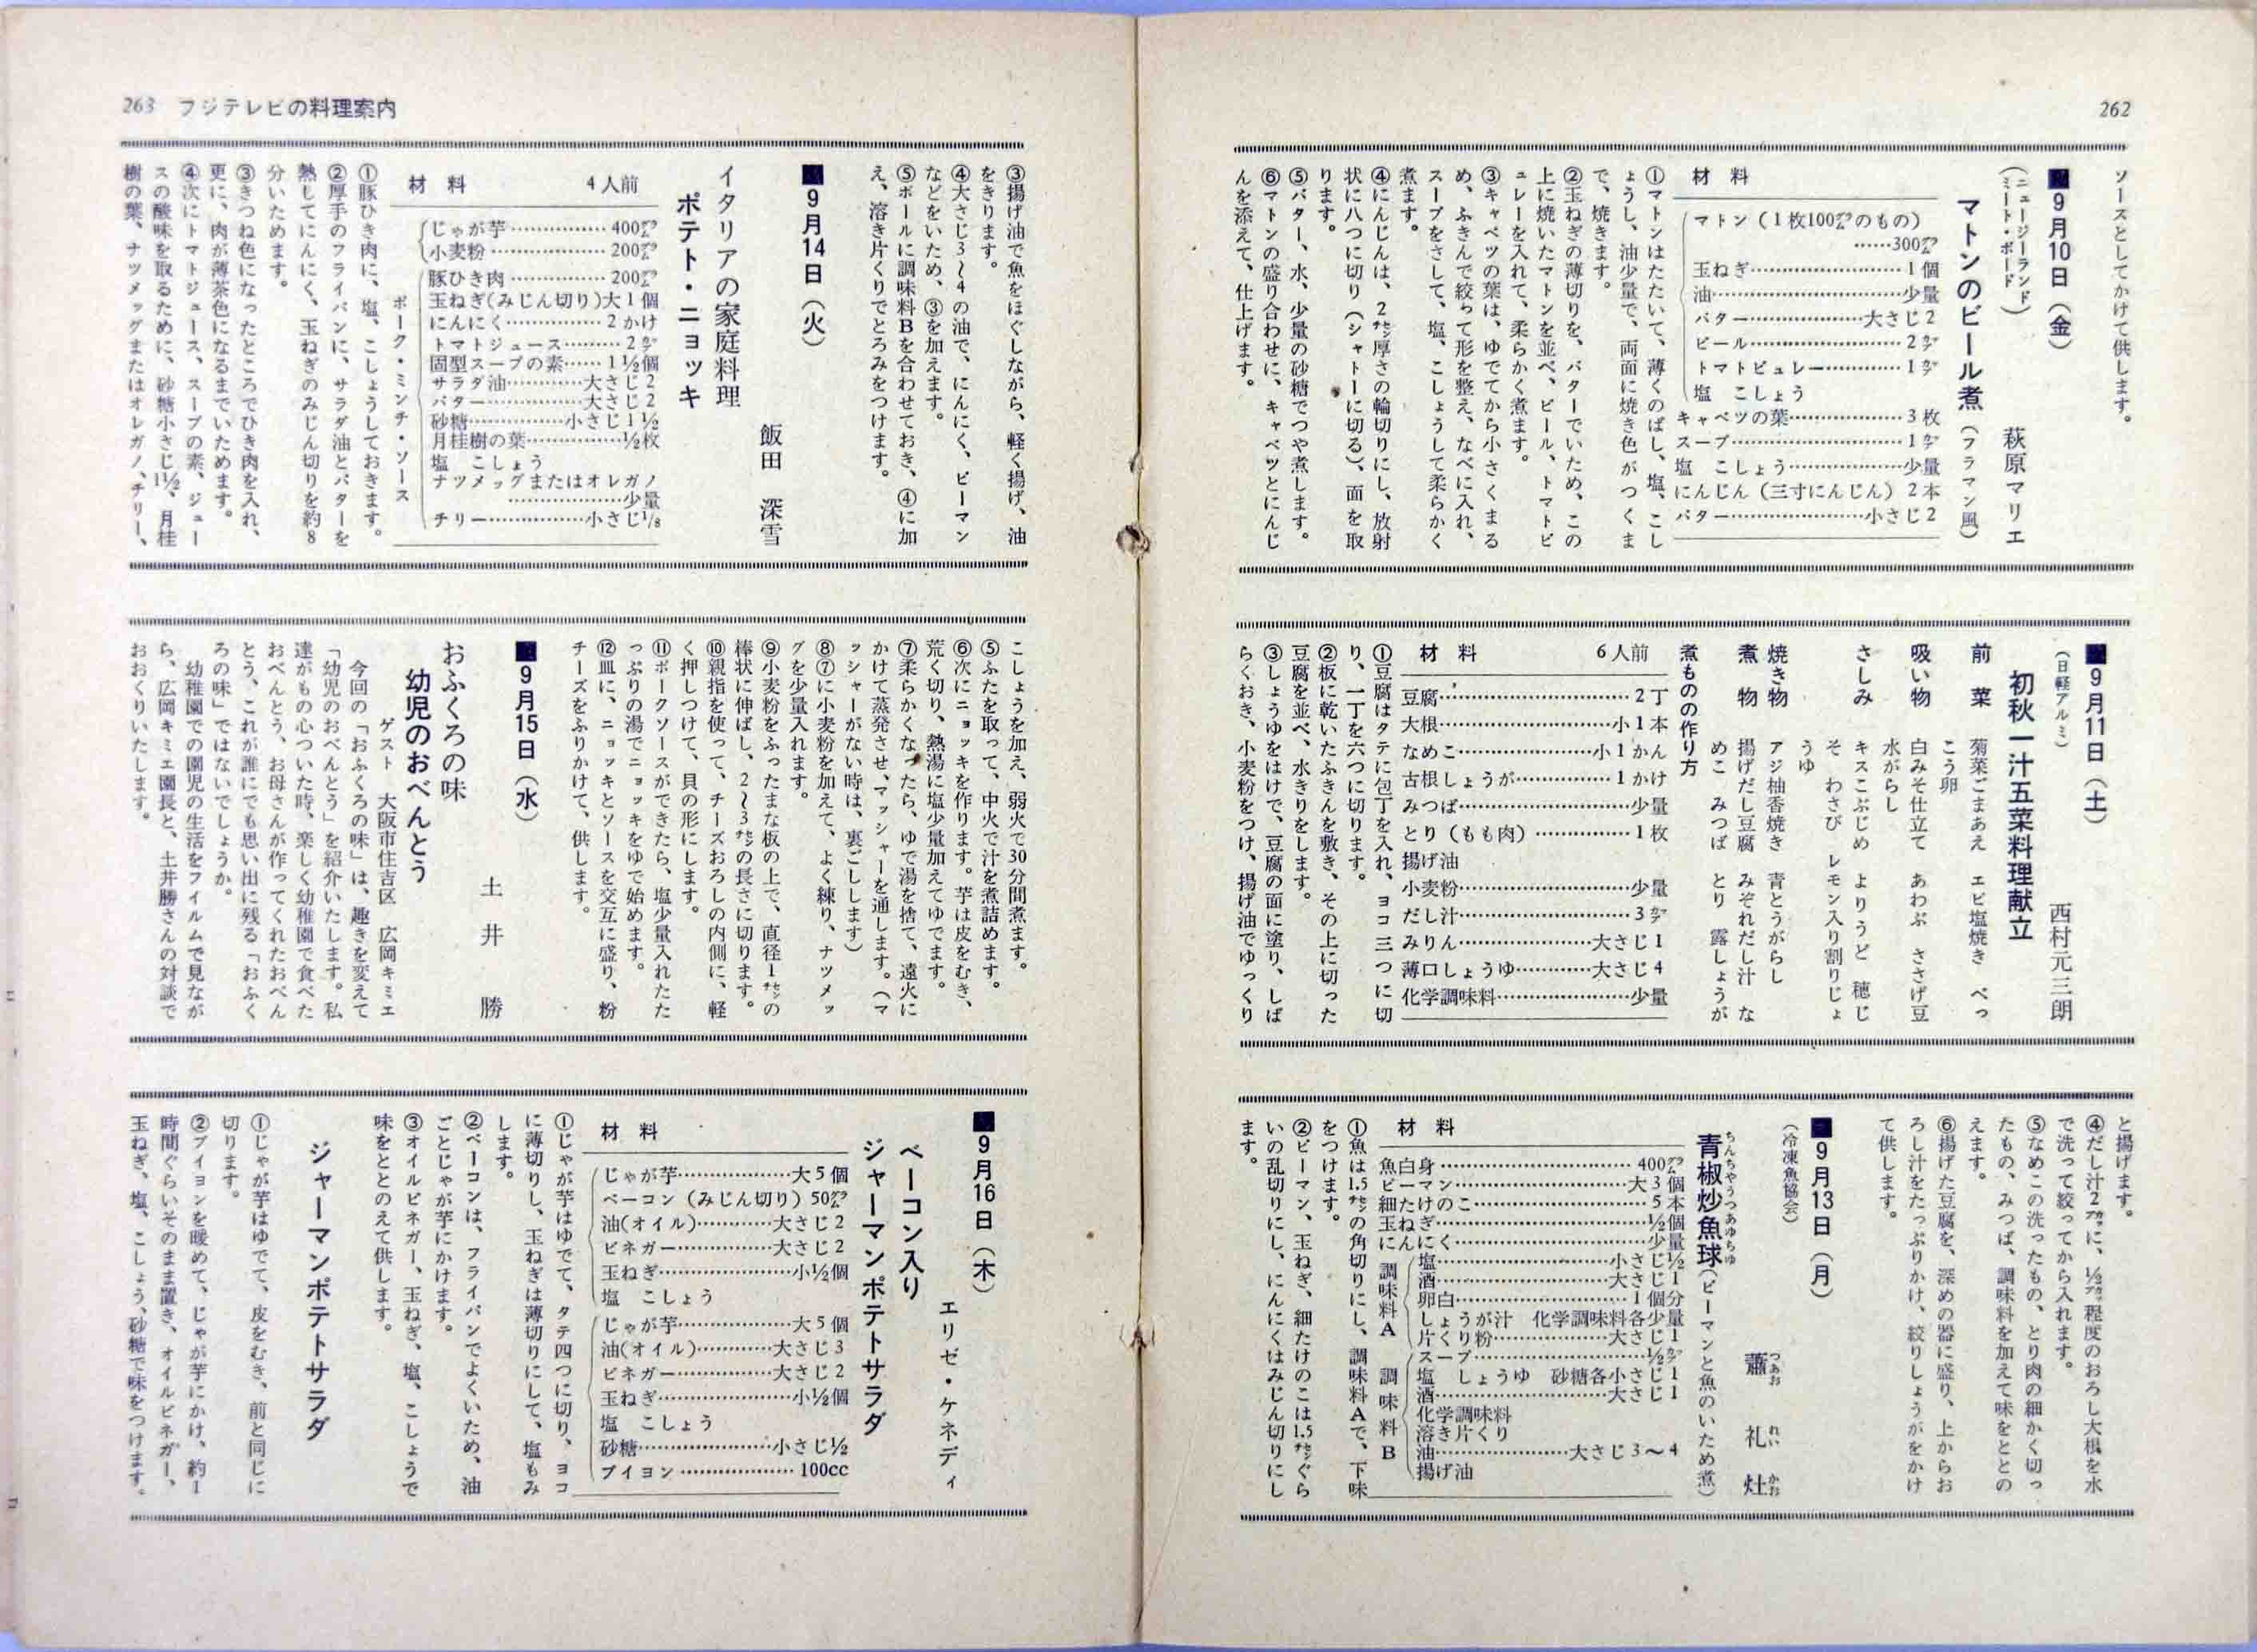 262
ソースとしてかけて供します。
■9月10日（金）
（ニュージーランド
ミート・ボード）
萩原マリエ
マトンのビール煮（フラマン風）
材　料
マトン（1枚100㌘のもの）
……300㌘
玉ねぎ……1個
油……少量
バター……大さじ2
ビール……2㌍
トマトピュレー……1㌍
塩　こしょう
キャベツの葉……3枚
スープ……1㌍
塩　こしょう……少量
にんじん（三寸にんじん）2本
バター……小さじ2
①マトンはたたいて、薄くのばし、塩、こし
ょうし、油少量で、両面に焼き色がつくま
で、焼きます。
②玉ねぎの薄切りを、バターでいため、この
上に焼いたマトンを並べ、ビール、トマトピ
ュレーを入れて、柔らかく煮ます。
③キャベツの葉は、ゆでてから小さくまる
め、ふきんで絞って形を整え、なべに入れ、
スープをさして、塩、こしょうして柔らかく
煮ます。
④にんじんは、2㌢厚さの輪切りにし、放射
状に八つに切り（シャトーに切る）、面を取
ります。
⑤バター、水、少量の砂糖でつや煮します。
⑥マトンの盛り合わせに、キャベツとにんじ
んを添えて、仕上げます。
■9月11日（土）
（日軽アルミ）
西村元三朗
初秋一汁五菜料理献立
前　菜　菊菜ごまあえ　エビ塩焼き　べっ
こう卵
吸い物　白みそ仕立て　あわぶ　ささげ豆
水がらし
さしみ　キスこぶじめ　よりうど　穂じ
そ　わさび　レモン入り割りじょ
うゆ
焼き物　アジ柚香焼き　青とうがらし
煮　物　揚げだし豆腐　みぞれだし汁　な
めこ　みつば　とり　露しょうが
煮もの の作り方
材　料　6人前
豆腐……2丁
大根……小1本
なめこ……小1かん
古根しょうが……1かけ
みつば……少量
とり（もも肉）……1枚
揚げ油
小麦粉……少量
だし汁……3㌍
みりん……大さじ1
薄口しょうゆ……大さじ4
化学調味料……少量
①豆腐はタテに包丁を入れ、ヨコ三つに切
り、一丁を六つに切ります。
②板に乾いたふきんを敷き、その上に切った
豆腐を並べ、水きりをします。
③しょうゆをはけで、豆腐の面に塗り、しば
らくおき、小麦粉をつけ、揚げ油でゆっくり
と揚げます。
④だし汁2㌍に、½㌍程度のおろし大根を水
で洗って絞ってから入れます。
⑤なめこの洗ったもの、とり肉の細かく切っ
たもの、みつば、調味料を加えて味をととの
えます。
⑥揚げた豆腐を、深めの器に盛り、上からお
ろし汁をたっぷりかけ、絞りしょうがをかけ
て供します。
■9月13日（月）
（冷凍魚協会）
蕭　礼　灶
つあお　れい　かお
青椒炒魚球（ビーマンと魚のいため煮）
ちんちやうつあゆらゆ
材　料
魚白身……400㌘
ビーマン……大3個
細たけのこ……5本
玉ねぎ……½個
にんにく……少量
調味料A
塩……小さじ½
酒……大さじ1
卵白……1個分
しょうが汁　化学調味料各少量
片くり粉……大さじ1
調味料B
スープ……½㌍
塩　しょうゆ　砂糖各小さじ1
酒……大さじ1
化学調味料
溶き片くり
油……大さじ3〜4
揚げ油
①魚は1.5㌢の角切りにし、調味料Aで、下味
をつけます。
②ピーマン、玉ねぎ、細たけのこは1.5㌢ぐら
いの乱切りにし、にんにくはみじん切りにし
ます。
263　フジテレビの料理案内
③揚げ油で魚をほぐしながら、軽く揚げ、油
をきります。
④大さじ3〜4の油で、にんにく、ピーマン
などをいため、③を加えます。
⑤ボールに調味料Bを合わせておき、④に加
え、溶き片くりでとろみをつけます。
■9月14日（火）
飯田　深雪
イタリアの家庭料理
ポテト・ニョッキ
材　料　4人前
じゃが芋……400㌘
小麦粉……200㌘
ポーク・ミンチ・ソース
豚ひき肉……200㌘
玉ねぎ(みじん切り)大1個
にんにく……2かけ
トマトジュース……2㌍
固型スープの素……1½個
サラダ油……大さじ2
バター……大さじ2
砂糖……小さじ1½
月桂樹の葉……½枚
塩　こしょう
ナツメッグまたはオレガノ
……少量
チリー……小さじ⅛
①豚ひき肉に、塩、こしょうしておきます。
②厚手のフライパンに、サラダ油とバターを
熱してにんにく、玉ねぎのみじん切りを約8
分いためます。
③きつね色になったところでひき肉を入れ、
更に、肉が薄茶色になるまでいためます。
④次にトマトジュース、スープの素、ジュー
スの酸味を取るために、砂糖小さじ1½、月桂
樹の葉、ナツメッグまたはオレガノ、チリー、
こしょうを加え、弱火で30分間煮ます。
⑤ふたを取って、中火で汁を煮詰めます。
⑥次にニョッキを作ります。芋は皮をむき、
荒く切り、熱湯に塩少量加えてゆでます。
⑦柔らかくなったら、ゆで湯を捨て、遠火に
かけて蒸発させ、マッシャーを通します。（マ
ッシャーがない時は、裏ごしします）
⑧⑦に小麦粉を加えて、よく練り、ナツメッ
グを少量入れます。
⑨小麦粉をふったまな板の上で、直径1㌢の
棒状に伸ばし、2〜3㌢の長さに切ります。
⑩親指を使って、チーズおろしの内側に、軽
く押しつけて、貝の形にします。
⑪ポークソースができたら、塩少量入れたた
っぷりの湯でニョッキをゆで始めます。
⑫皿に、ニョッキとソースを交互に盛り、粉
チーズをふりかけて、供します。
■9月15日（水）
土　井　勝
おふくろの味
幼児のおべんとう
ゲスト　大阪市住吉区　広岡キミエ
今回の「おふくろの味」は、趣きを変えて
「幼児のおべんとう」を紹介いたします。私
達がもの心ついた時、楽しく幼稚園で食べた
おべんとう、お母さんが作ってくれたおべん
とう、これが誰にでも思い出に残る「おふく
ろの味」ではないでしょうか。
幼稚園での園児の生活をフイルムで見なが
ら、広岡キミエ園長と、土井勝さんの対談で
おおくりいたします。
■9月16日（木）
エリゼ・ケネディ
ベーコン入り
ジャーマンポテトサラダ
材　料
じゃが芋……大5個
ベーコン（みじん切り）50㌘
油(オイル)……大さじ2
ビネガー……大さじ2
玉ねぎ……小½個
塩　こしょう
じゃが芋……大5個
油(オイル)……大さじ3
ビネガー……大さじ2
玉ねぎ……小½個
塩　こしょう
砂糖……小さじ½
ブイヨン……100cc
①じゃが芋はゆでて、タテ四つに切り、ヨコ
に薄切りし、玉ねぎは薄切りにして、塩もみ
します。
②ベーコンは、フライパンでよくいため、油
ごとじゃが芋にかけます。
③オイルビネガー、玉ねぎ、塩、こしょうで
味をととのえて供します。
ジャーマンポテトサラダ
①じゃが芋はゆでて、皮をむき、前と同じに
切ります。
②ブイヨンを暖めて、じゃが芋にかけ、約1
時間ぐらいそのまま置き、オイルビネガー、
玉ねぎ、塩、こしょう、砂糖で味をつけます。